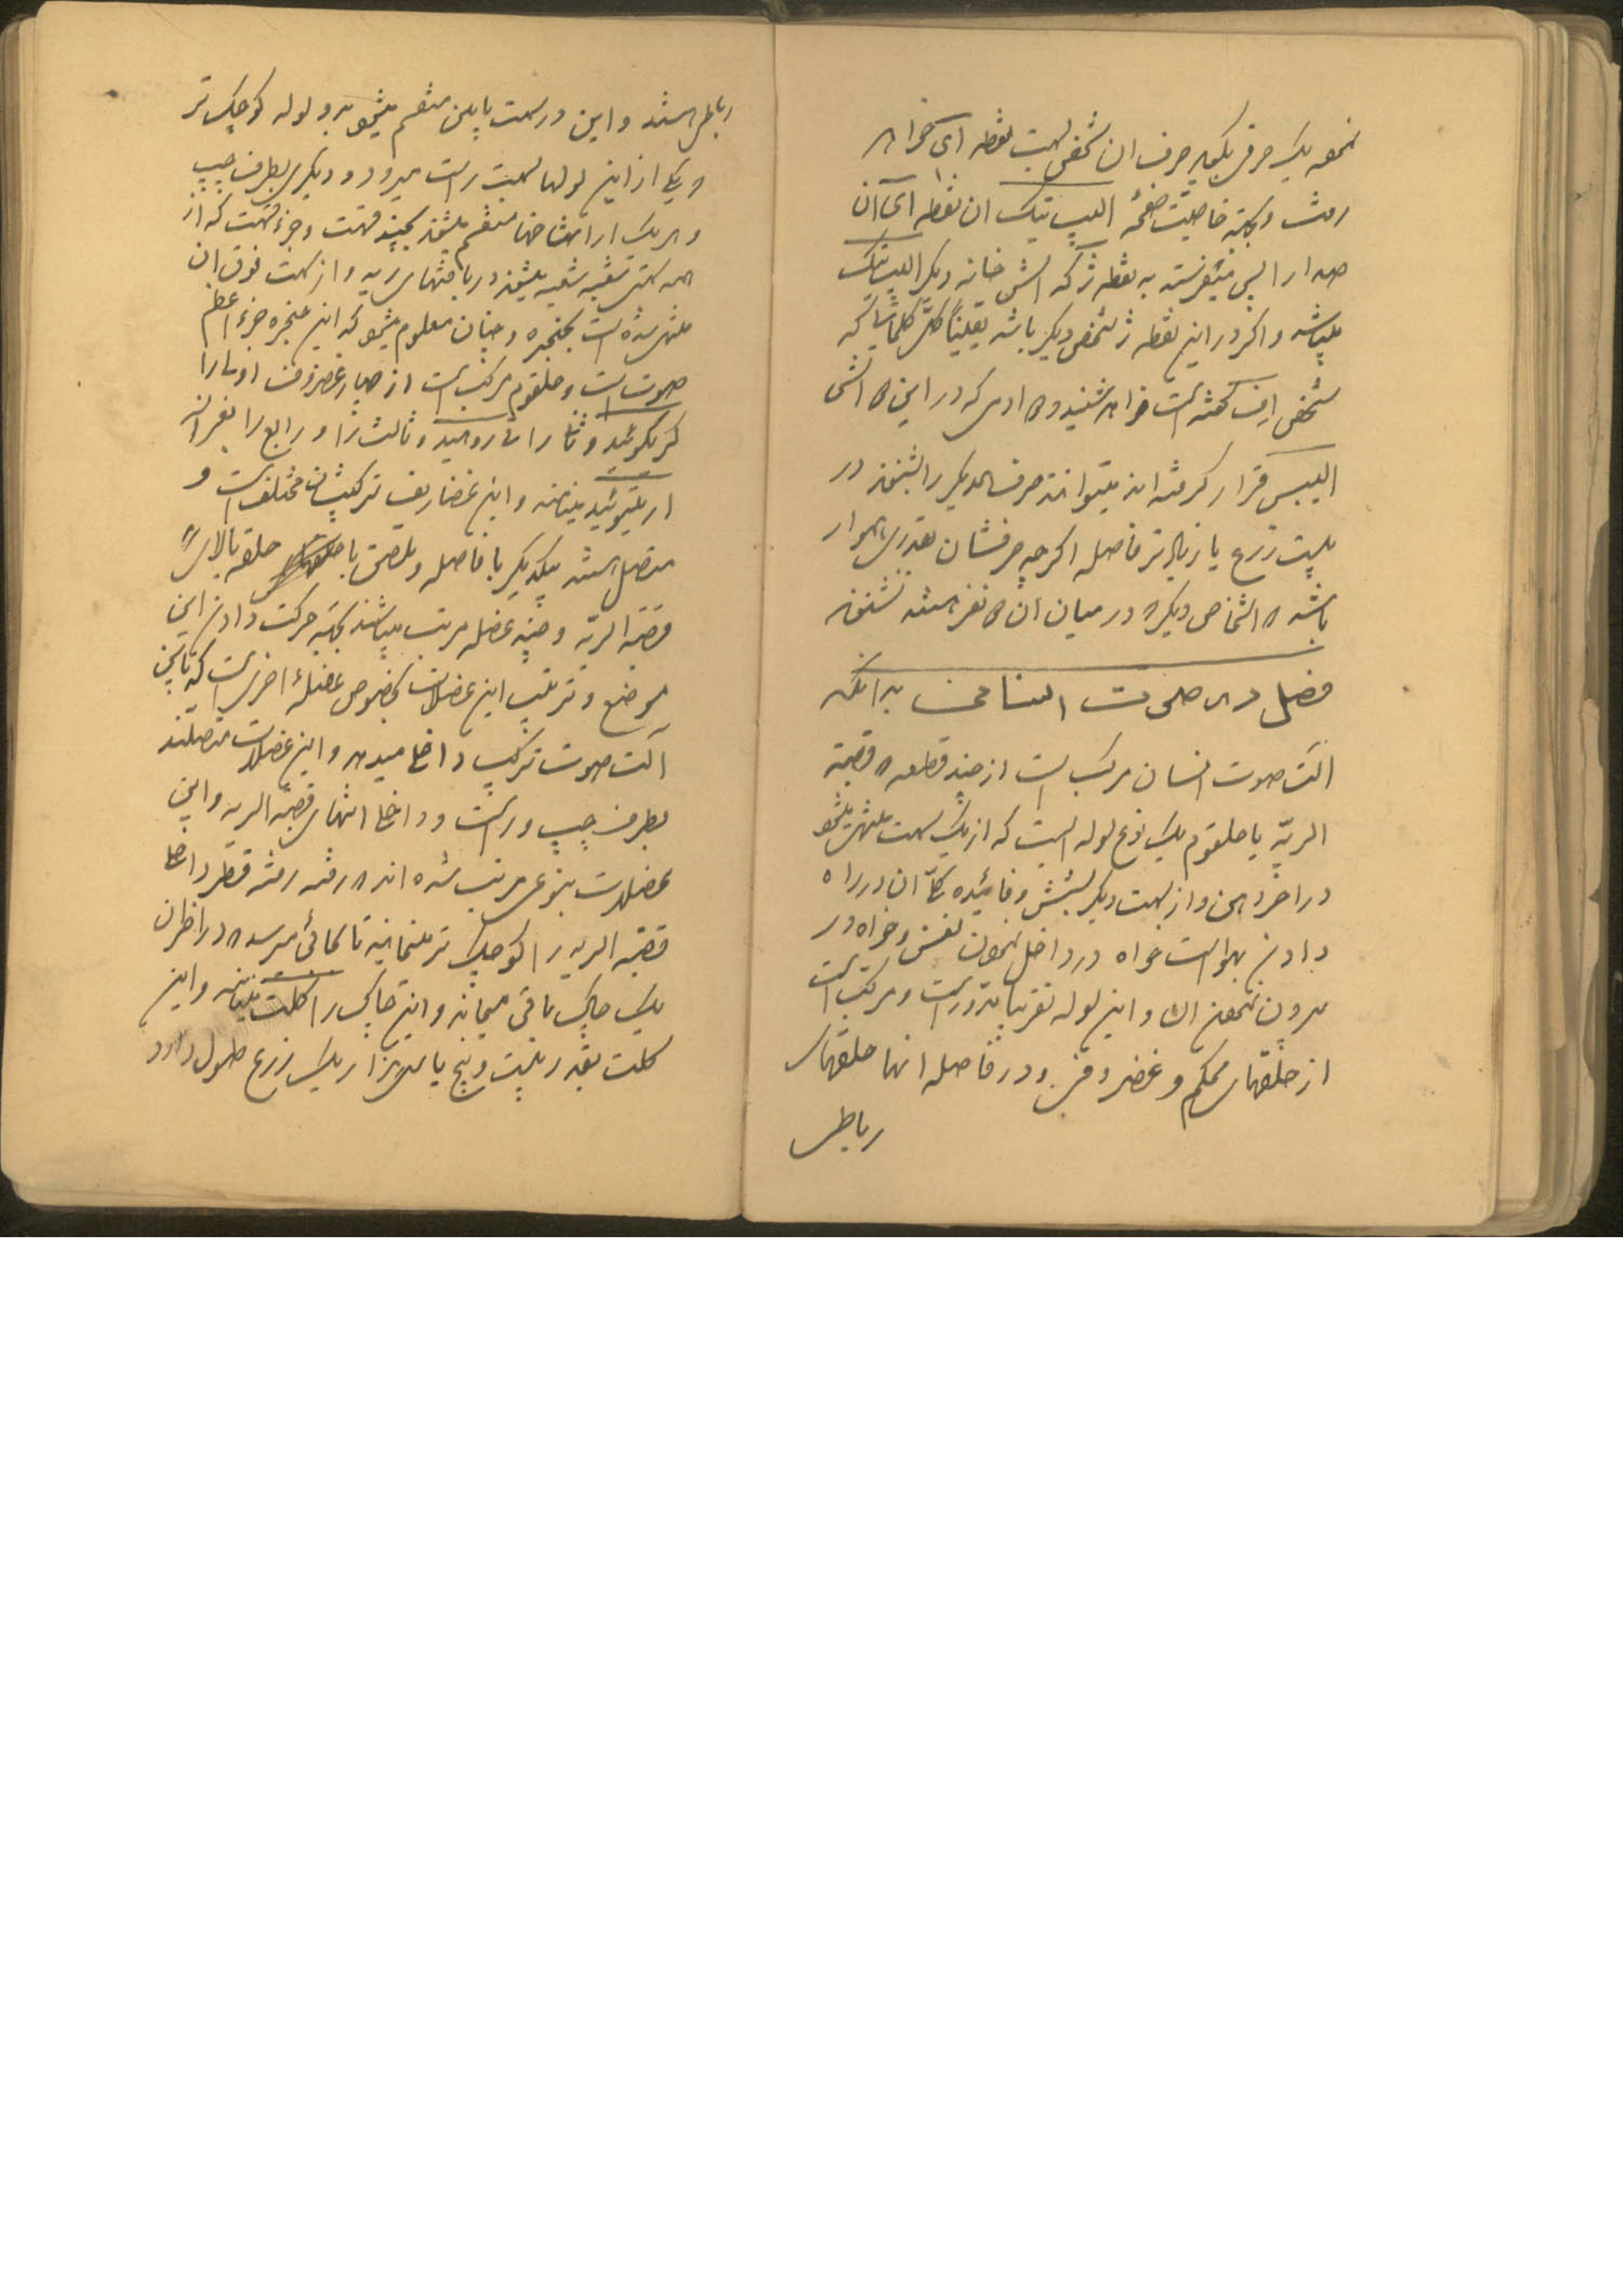 نموده یک حرفی بگوید حرف ان شخص بسمت نقطه ای خواهد
رفت و بجهة خاصیّت صفحهٔ الیپ تیک ان نقطه ای آن
صدا را پس میفرستد به نقطه ژ که آتش خانه دیگر الیپ تیک
میباشد و اگر در این نقطه ژ شخص دیگر باشد یقیناً کلّ کلماتیا که
شخص اِف گفته است خواهد شنید و ادمی که در این آتش
الیپس قرار گرفته اند میتوانند حرف همدیگر را بشنوند در
بیست زرع یا زیادتر فاصله اگرچه حرفشان بقدری هموار
باشد که اشخاص دیگر که در میان آن نفر هستند نشنوند
فصل در صوت انسانی بدانکه
الت صوت انسان مرکب است از چند قطعه قصبة
الریّه یا حلقوم یک نوع لوله ایست که از یک سمت منتهی میشود
در اخر دهن و از سمت دیگر بشش و فائده کلّ ان در راه
دادن بهوا است خواه در داخل نمودن نفس و خواه در
بیرون نمودن ان و این لوله تقریباً مدوّر است و مرکب است
از حلقهای محکم و غضروفی و در فاصله انها حلقهای
رباطی
رباطی هستند و این در سمت پایین منقسم میشود بدو لوله کوچک تر
که یکی از این لولها بسمت راست میرود و دیگری بطرف چپ
و هر یک از انها منقسم میشوند بچند قسمت و جزء قسمت که از
همه سمتی شعبه شعبه میشوند در بافتهای ریه و از سمت فوق ان
منتهی شده است بحنجره و چنان معلوم میشود که این حنجره جزء اعظم
صوت است و حلقوم مرکب است از چهار غضروف اولی را
کریکوئید و ثانی را تیروئید و ثالث را و رابع را بفرانسه
اریتنوئید مینامند و این غضاریف ترکیبشان مختلف است و
متصل هستند بیکدیگر با فاصله و ملصق با حلقه بالای
قصبة الریّه و چند عضله مرتب میباشند بجهة حرکت دادن این
موضع و ترتیب این عضلات بخصوص عضلهٔ اخری است که پایین
آلت صوت ترکیب داخل میدهد و این عضلات متصلند
بطرف چپ و راست و داخل انتهای قصبة الریه و این
عضلات بنوعی مرتب شده اند که رفته رفته قطر داخل
قصبة الریه را کوچک تر مینمایند تا بجائی میرسد که در اخر ان
یک چاک باقی میماند و این چاک را گلت مینامند و این
گلت بقدر بیست و پنج یا سی هزار یک زرع طول دارد